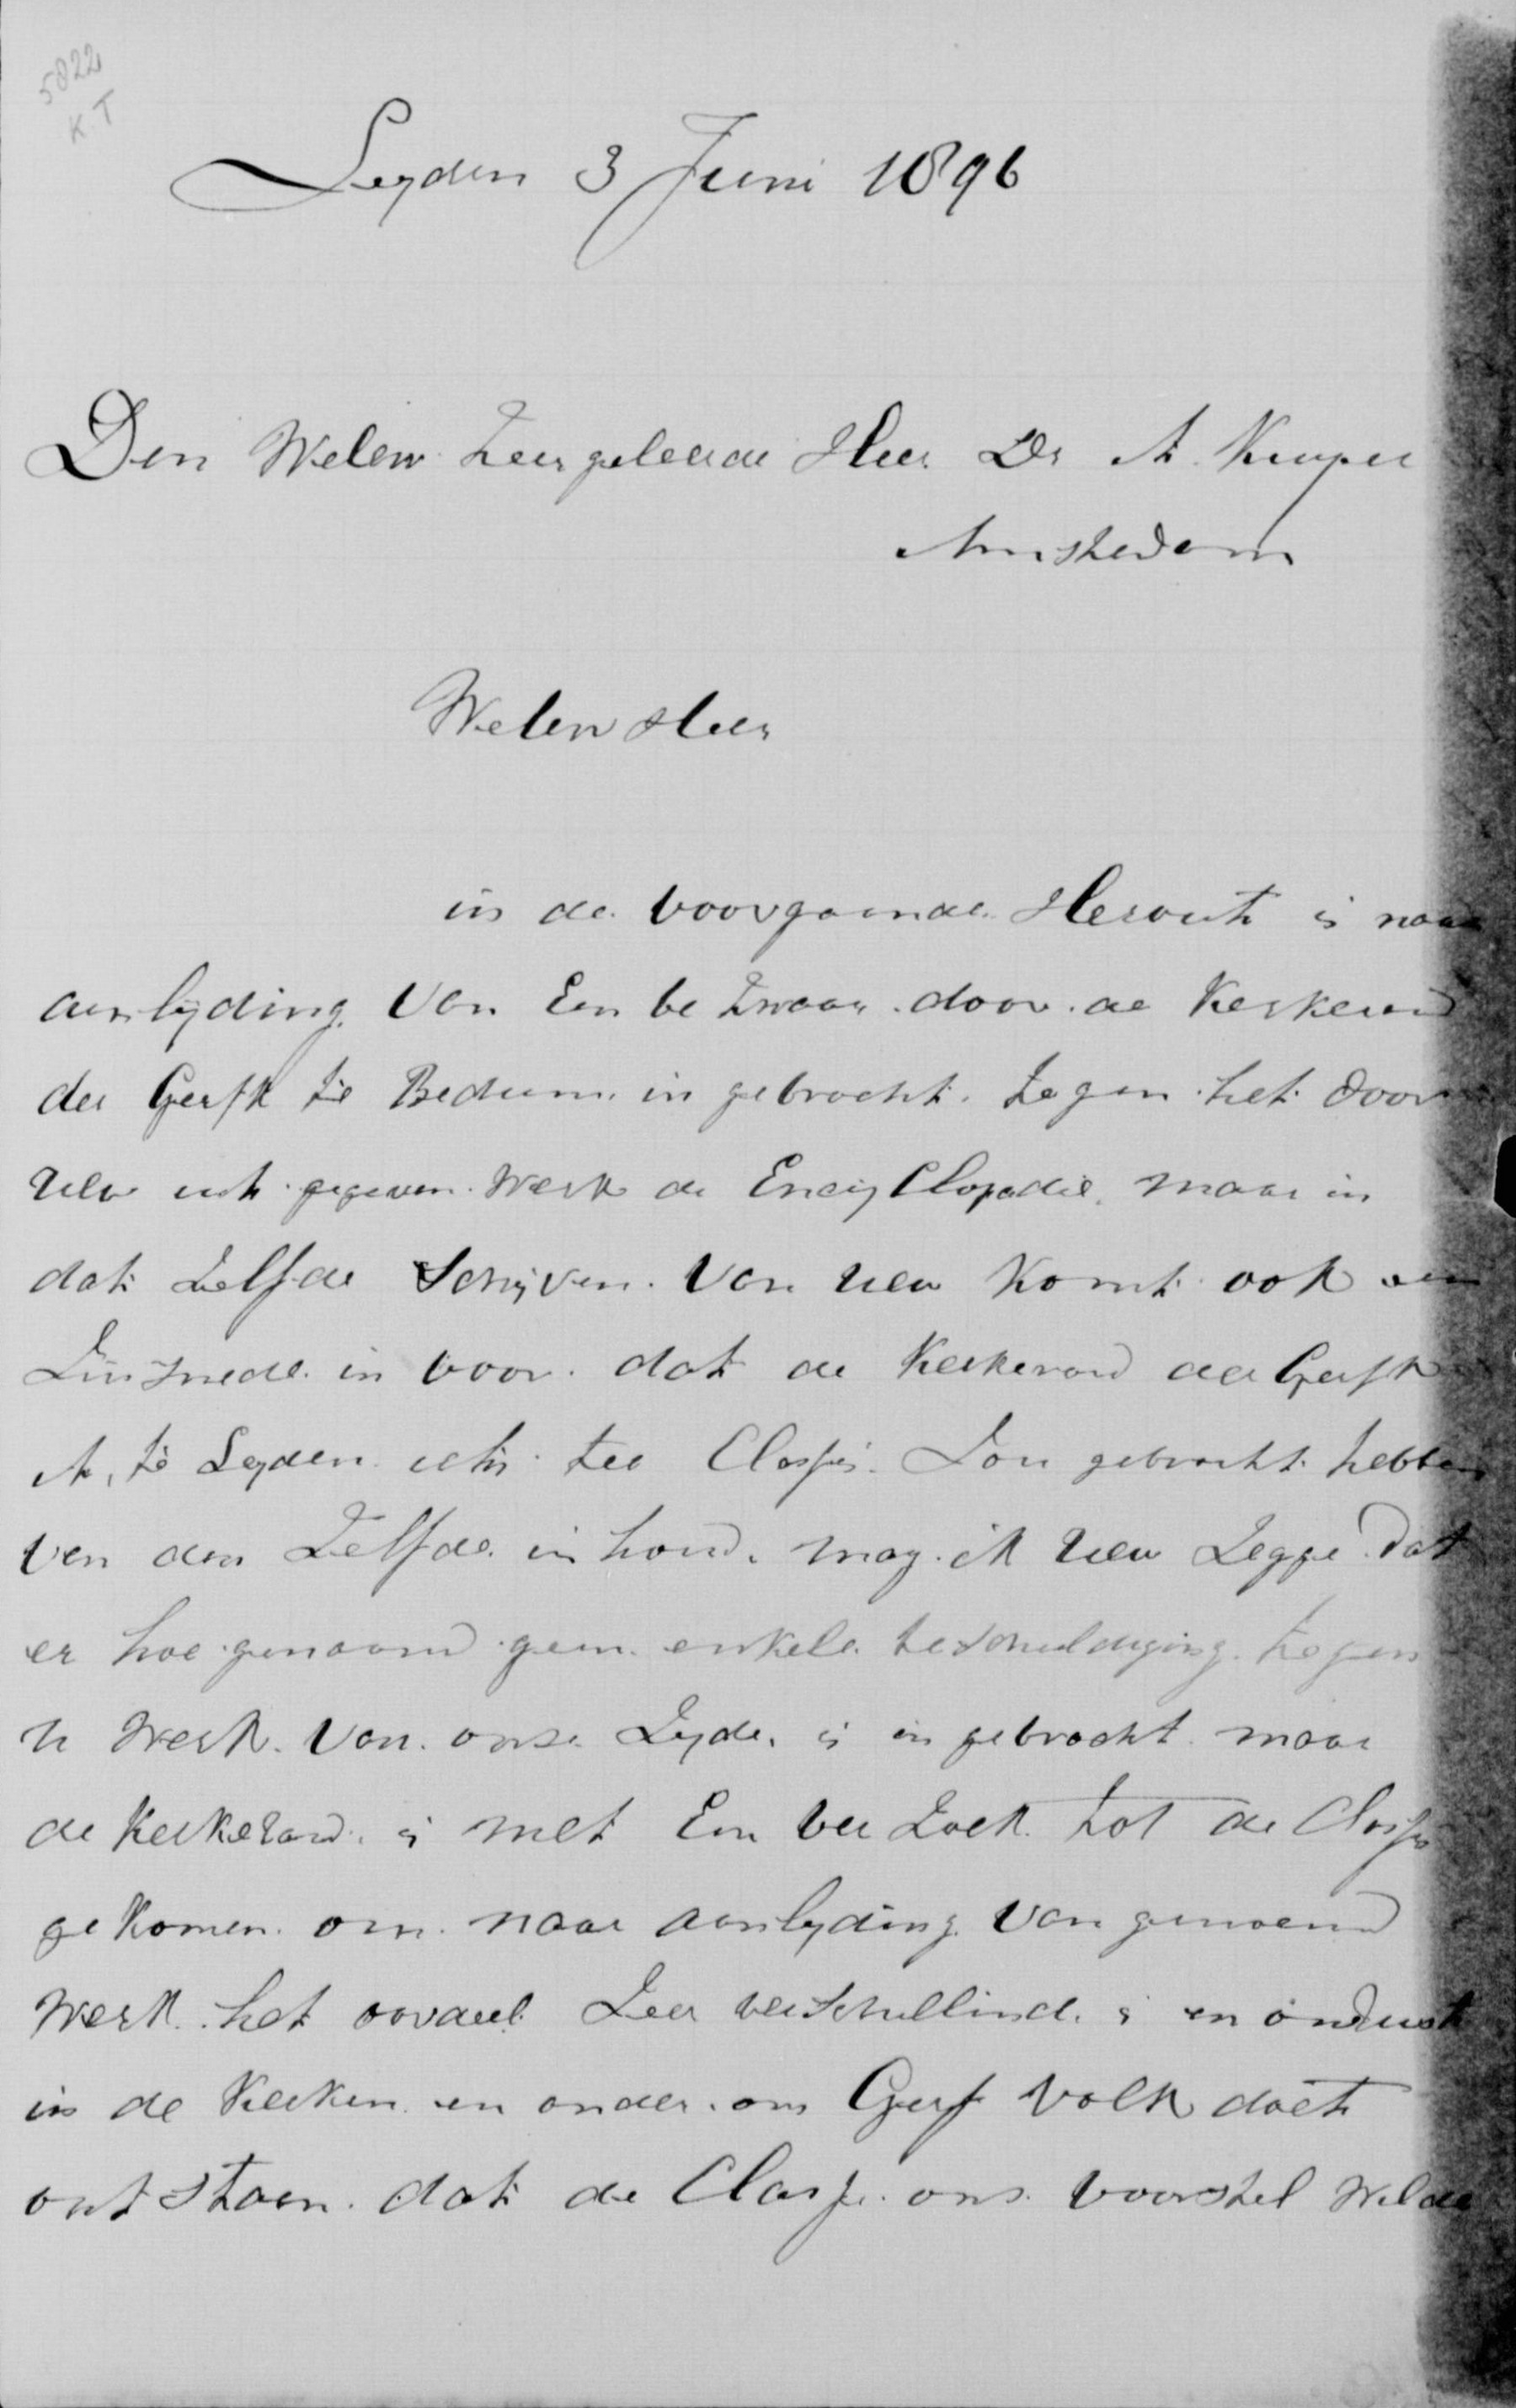 5822
KT
Leyden 3 Juni 1896
Den Welew Zeergeleerde Heer Dr A. Kuyper
Amsterdam
Welew Heer
in de voorgaande Herout is naar
aanlyding van Een be Zwaar door de Kerkeraad
der Gerfk te Bedum in gebracht tegen het door
Uew uit gegeven Werk de Encyclopadie maar in
dat Zelfde Schijven van uew Komt ook een
Zinsnede in voor dat de Kerkeraad der Gerfk
A, te Leyden iets ter Classis Zou gebracht hebben
van den Zelfde in houd. mag ik uew Zegge dat
er hoe genaamd geen enkele beschuldiging tegen
u Werk van onse Zyde is in gebracht maar
de Kerkeraad is met Een ver Zoek tot de Classis
ge Komen om naar aanlyding van genoemd
Werk het oordeel Zeer verschillind is en onrust
in de Kerken en onder ons Gerf volk doet
ont staan dat de Classe ons voorstel Wilde